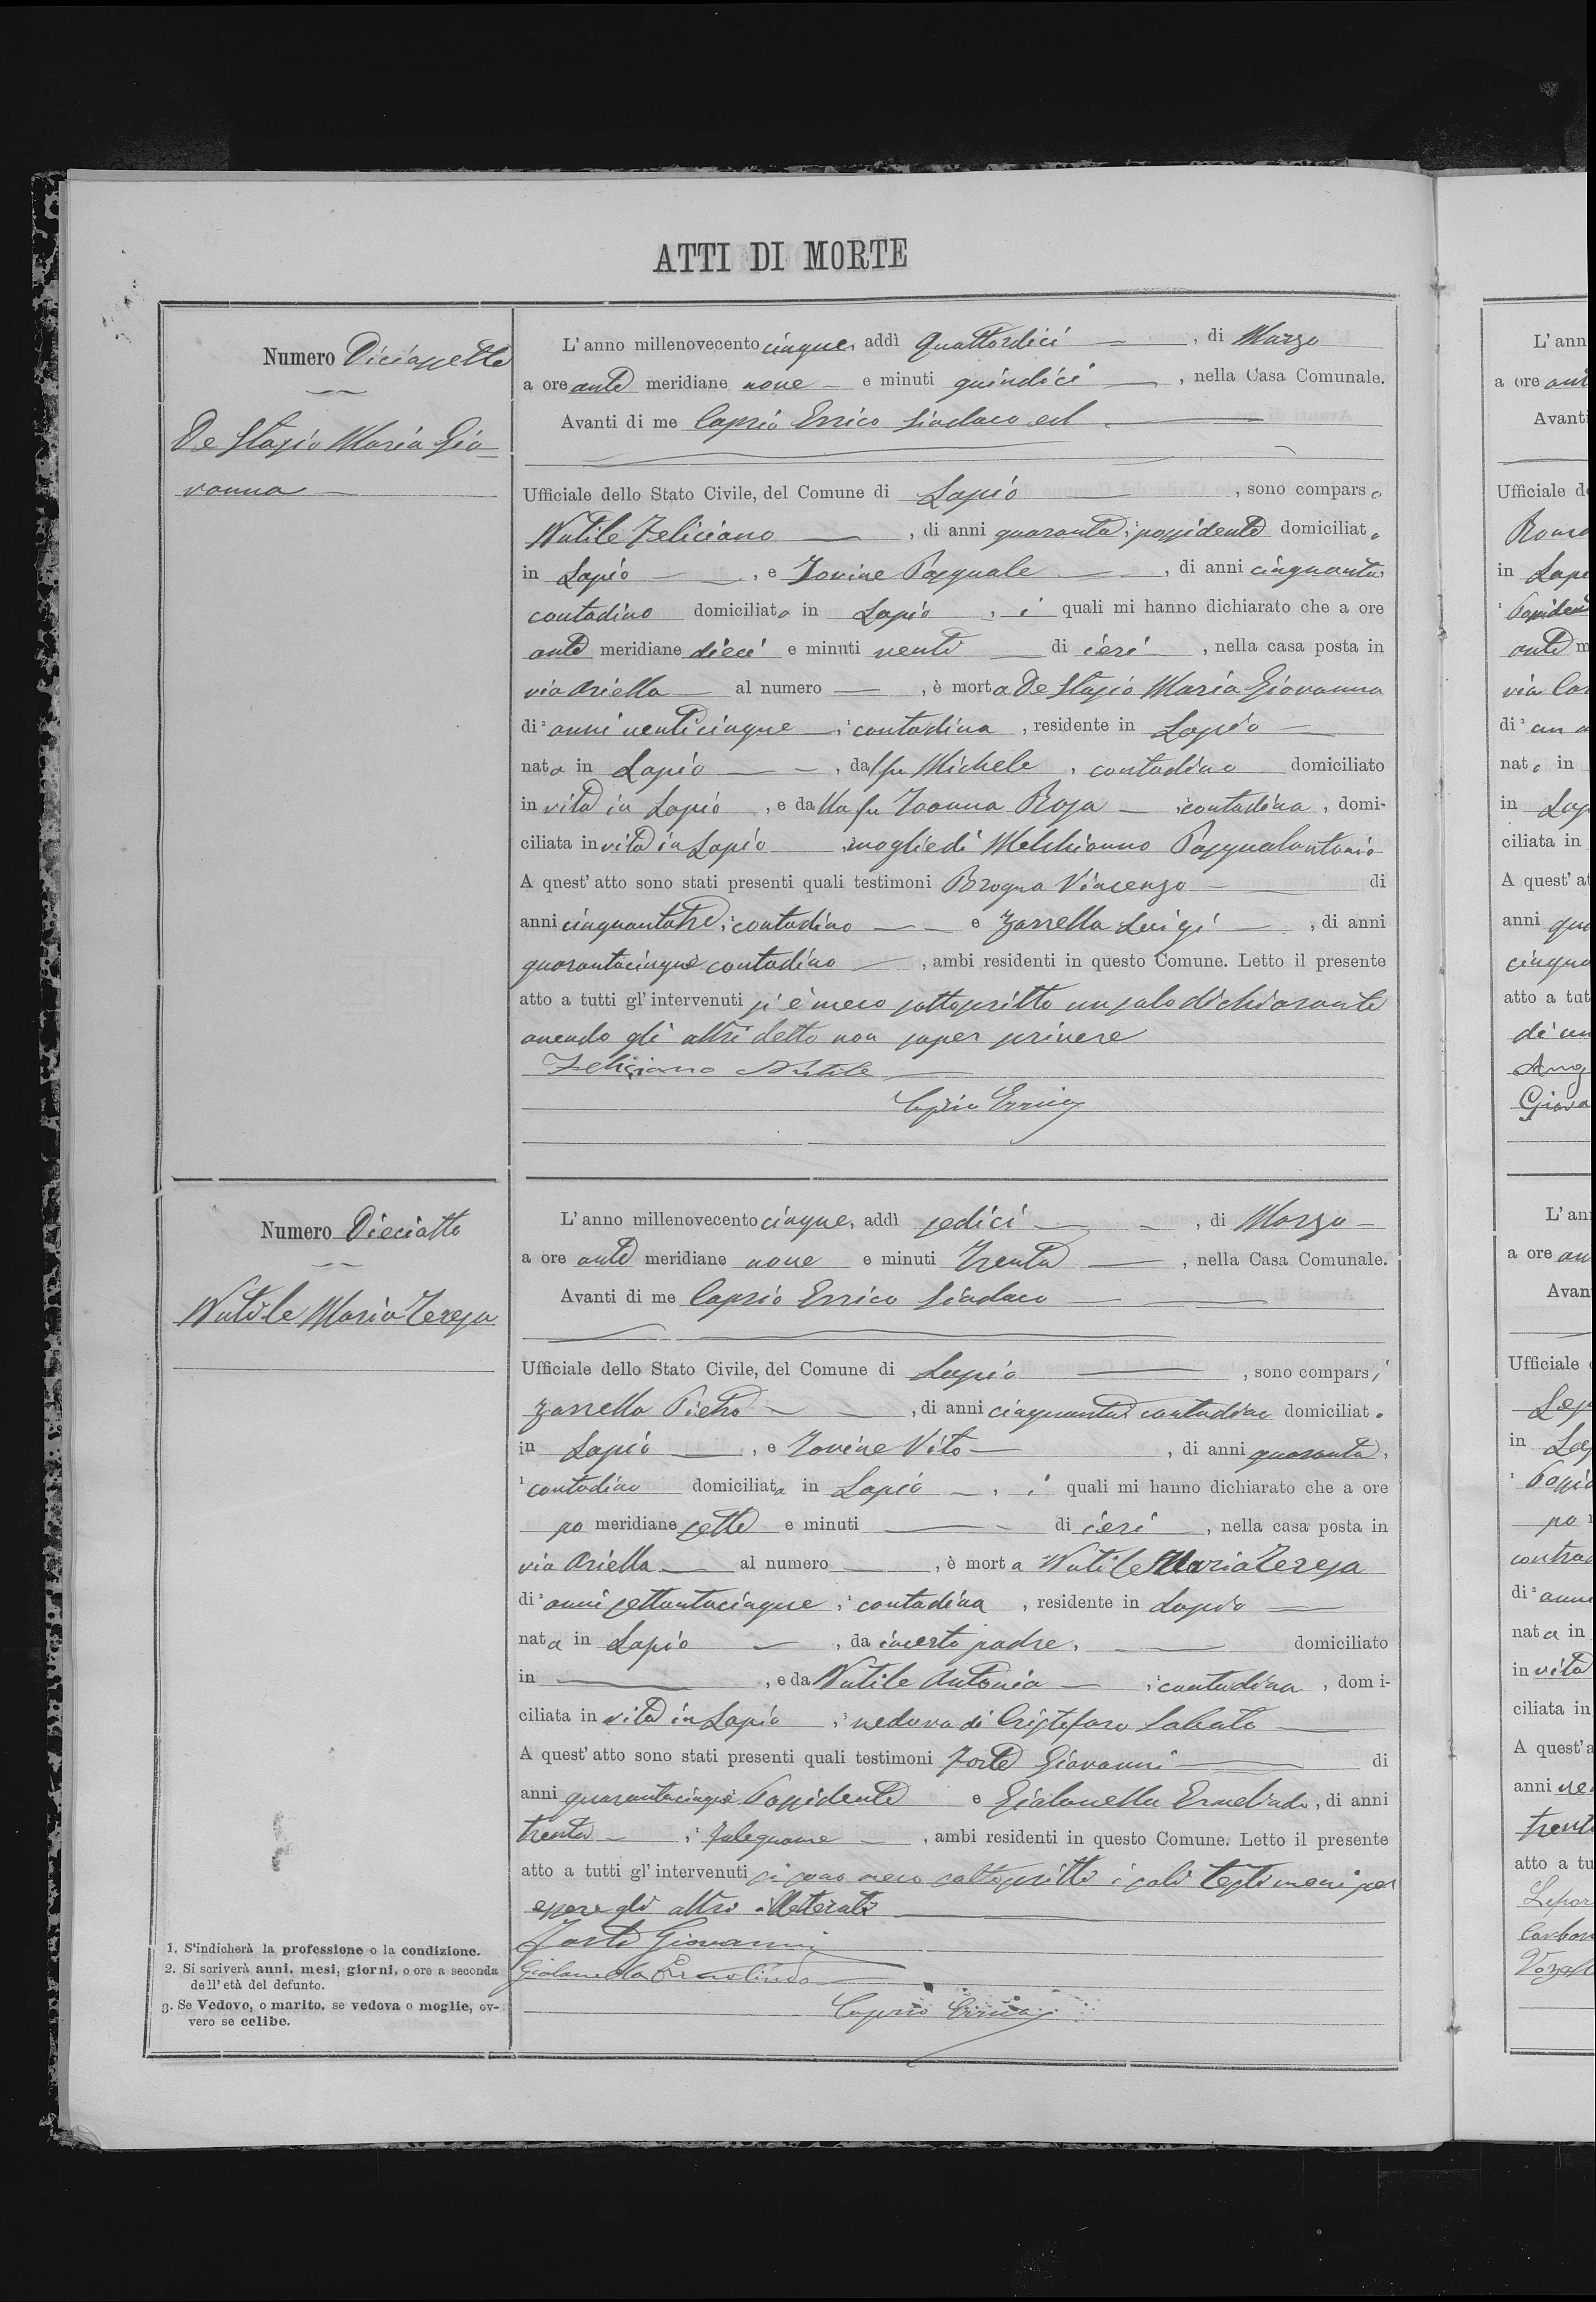 ATTI DI MORTE
Numero Diciassette
De Stasio Maria Gio-
vanna
L'anno millenovecento cinque, addì quattordici, di Marzo
a ore ante meridiane nove e minuti quindici, nella Casa Comunale.
Avanti di me Caprio Errico Sindaco ed
Ufficiale dello Stato Civile, del Comune di Lapio, sono comparsi
Nutile Feliciano, di anni quaranta, possidente domiciliato
in Lapio, e Iovine Pasquale, di anni cinquanta,
contadino domiciliato in Lapio, i quali mi hanno dichiarato che a ore
ante meridiane dieci e minuti venti di ieri, nella casa posta in
via Ariella al numero, è morta De Stasio Maria Giovanna
di ² anni venticinque, ¹ contadina, residente in Lapio
nata in Lapio, dal fu Michele, contadino domiciliato
in vita in Lapio, e dalla fu Rosa, contadina, domi-
ciliata in vita in Lapio, moglie di Melchionno Pasqualantonio
A quest'atto sono stati presenti quali testimoni Brogna Vincenzo di
anni cinquantatre, contadino e Zarrella Luigi, di anni
quarantacinque contadino, ambi residenti in questo Comune. Letto il presente
atto a tutti gl'intervenuti si è meco sottoscritto un solo dichiarante
avendo gli altri detto non saper scrivere
Feliciano Nutile
Caprio Errico
Numero Dieciotto
Nutile Maria Teresa
L'anno millenovecento cinque, addì sedici, di Marzo
a ore ante meridiane nove e minuti trenta, nella Casa Comunale.
Avanti di me Caprio Errico Sindaco
Ufficiale dello Stato Civile, del Comune di Lapio, sono comparsi
Zarrella Pietro, di anni cinquanta, contadino domiciliato
in Lapio, e Iovine Vito, di anni quaranta,
¹ contadino domiciliato in Lapio, i quali mi hanno dichiarato che a ore
po meridiane sette e minuti di ieri, nella casa posta in
via Ariella al numero, è morta Nutile Maria Teresa
di ² anni settantacinque, ¹ contadina, residente in Lapio
nata in Lapio, da incerto padre, domiciliato
in, e da Nutile Antonia, contadina, domi-
ciliata in vita in Lapio, ³ vedova di Cristofaro Sabato
A quest'atto sono stati presenti quali testimoni Forte Giovanni di
anni quarantacinque Possidente e Gialanella Ermelindo, di anni
trenta, ¹ falegname, ambi residenti in questo Comune. Letto il presente
atto a tutti gl'intervenuti si sono meco sottoscritti i soli testimoni per
essere gli altri illetterati
Forte Giovanni
Gialanella Ermelindo
Caprio Errico
1. S'indicherà la professione o la condizione.
2. Si scriverà anni, mesi, giorni, o ore a seconda
dell'età del defunto.
3. Se Vedovo, o marito, se vedova o moglie, ov-
vero se celibe.